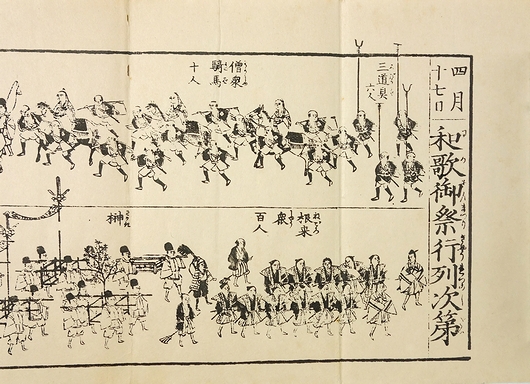 四月
十七日
和歌御祭行列次第
三道具
六人
僧衆
騎馬
十人
根来
衆
百人
榊